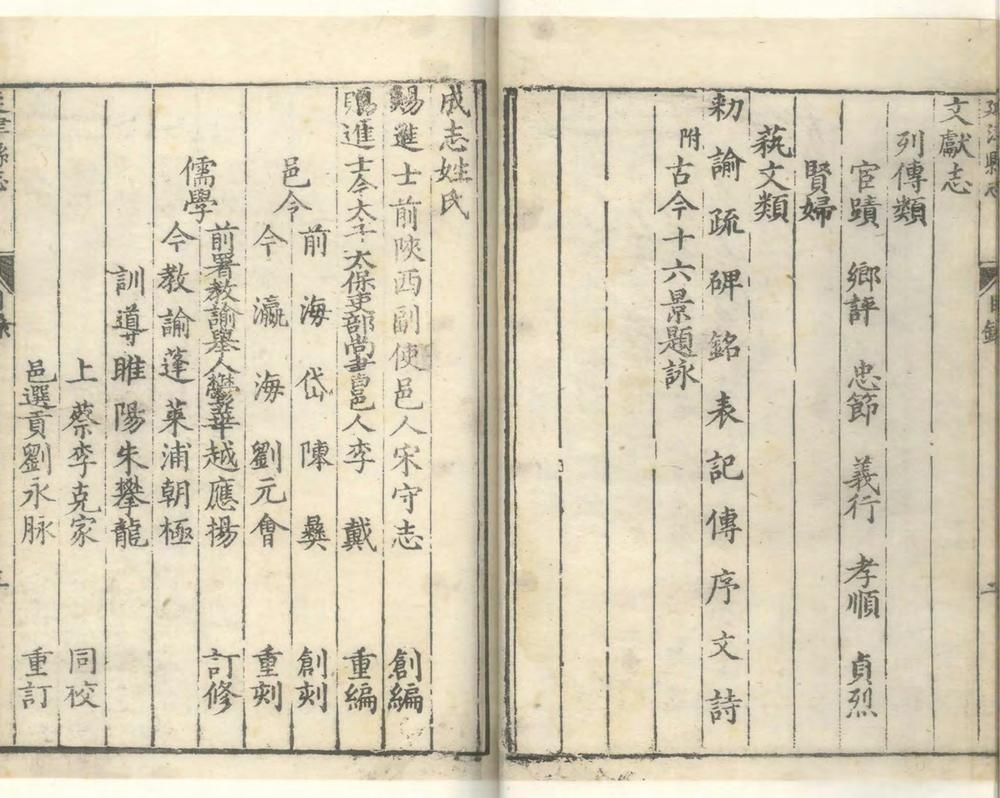 文獻志
列傳類
宦蹟 鄉評 忠節 義行 孝順 貞烈
賢婦
蓺文類
勑諭疏碑銘表記傳序文詩
附古今十六景題詠
目錄
成志姓氏
賜進士前陝西副使邑人宋守志 創編
賜進士今太子太保吏部尚書邑人李戴 重編
邑令
前海岱陳彜 創刻
今瀛海劉元會 重刻
儒學
前署教諭舉人 華越應揚 訂修
今教諭蓬萊浦朝極
訓導睢陽朱攀龍
上蔡李克家 同校
邑選貢劉永脉 重訂
延津縣志